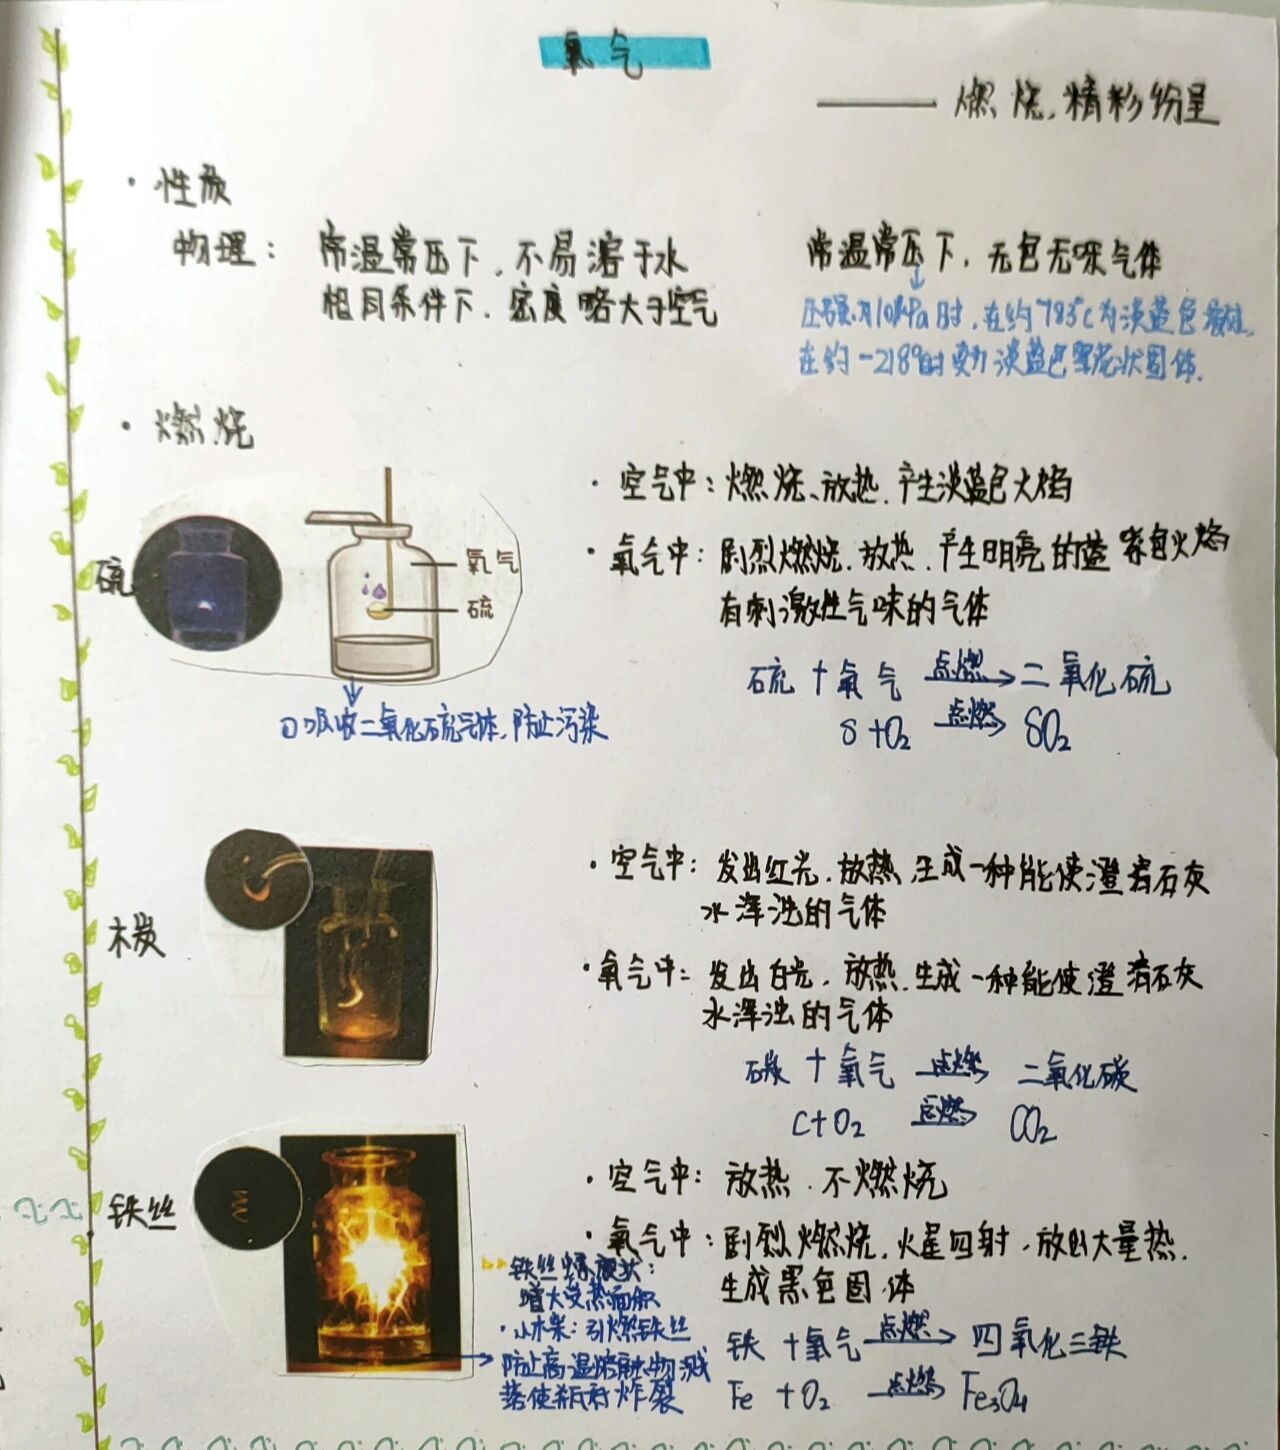 氧气
—— 燃烧,精彩纷呈
· 性质
物理: 常温常压下,不易溶于水
相同条件下,密度略大于空气
常温常压下,无色无味气体
压强为101kPa时,在约-183℃为淡蓝色液体,
在约-218℃时变为淡蓝色雪花状固体.
· 燃烧
硫
氧气
硫
吸收二氧化硫气体,防止污染
· 空气中: 燃烧、放热,产生淡蓝色火焰
· 氧气中: 剧烈燃烧,放热,产生明亮的蓝紫色火焰
有刺激性气味的气体
硫 + 氧气 点燃→ 二氧化硫
S + O₂ 点燃→ SO₂
木炭
· 空气中: 发出红光,放热,生成一种能使澄清石灰
水浑浊的气体
· 氧气中: 发出白光,放热,生成一种能使澄清石灰
水浑浊的气体
碳 + 氧气 点燃→ 二氧化碳
C + O₂ 点燃→ CO₂
铁丝
· 空气中: 放热,不燃烧
· 氧气中: 剧烈燃烧,火星四射,放出大量热,
生成黑色固体
铁 + 氧气 点燃→ 四氧化三铁
Fe + O₂ 点燃→ Fe₃O₄
铁丝螺旋状:
增大受热面积
· 小木柴: 引燃铁丝
防止高温熔融物溅
落使瓶底炸裂